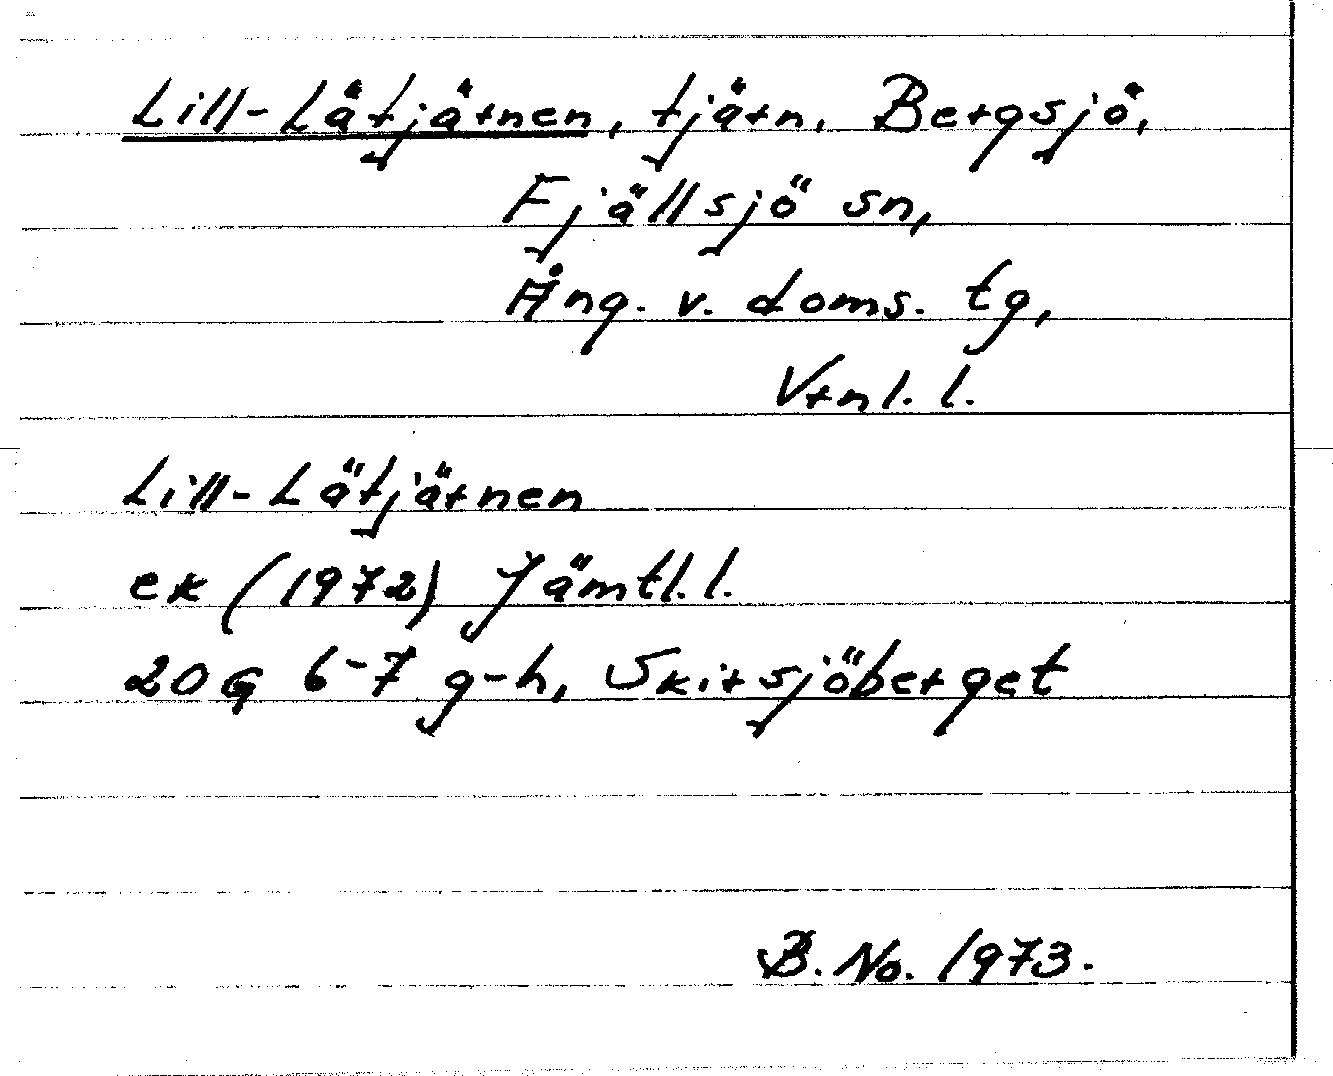 Lill-Lätjärnen, tjärn, Bergsjö,
Fjällsjö sn,
Ång. v. doms. tg,
Vtnl. l.
Lill-Lätjärnen
ek (1972) Jämtl. l.
20G 6-7 g-h, Skirsjöberget
B. No. 1973.